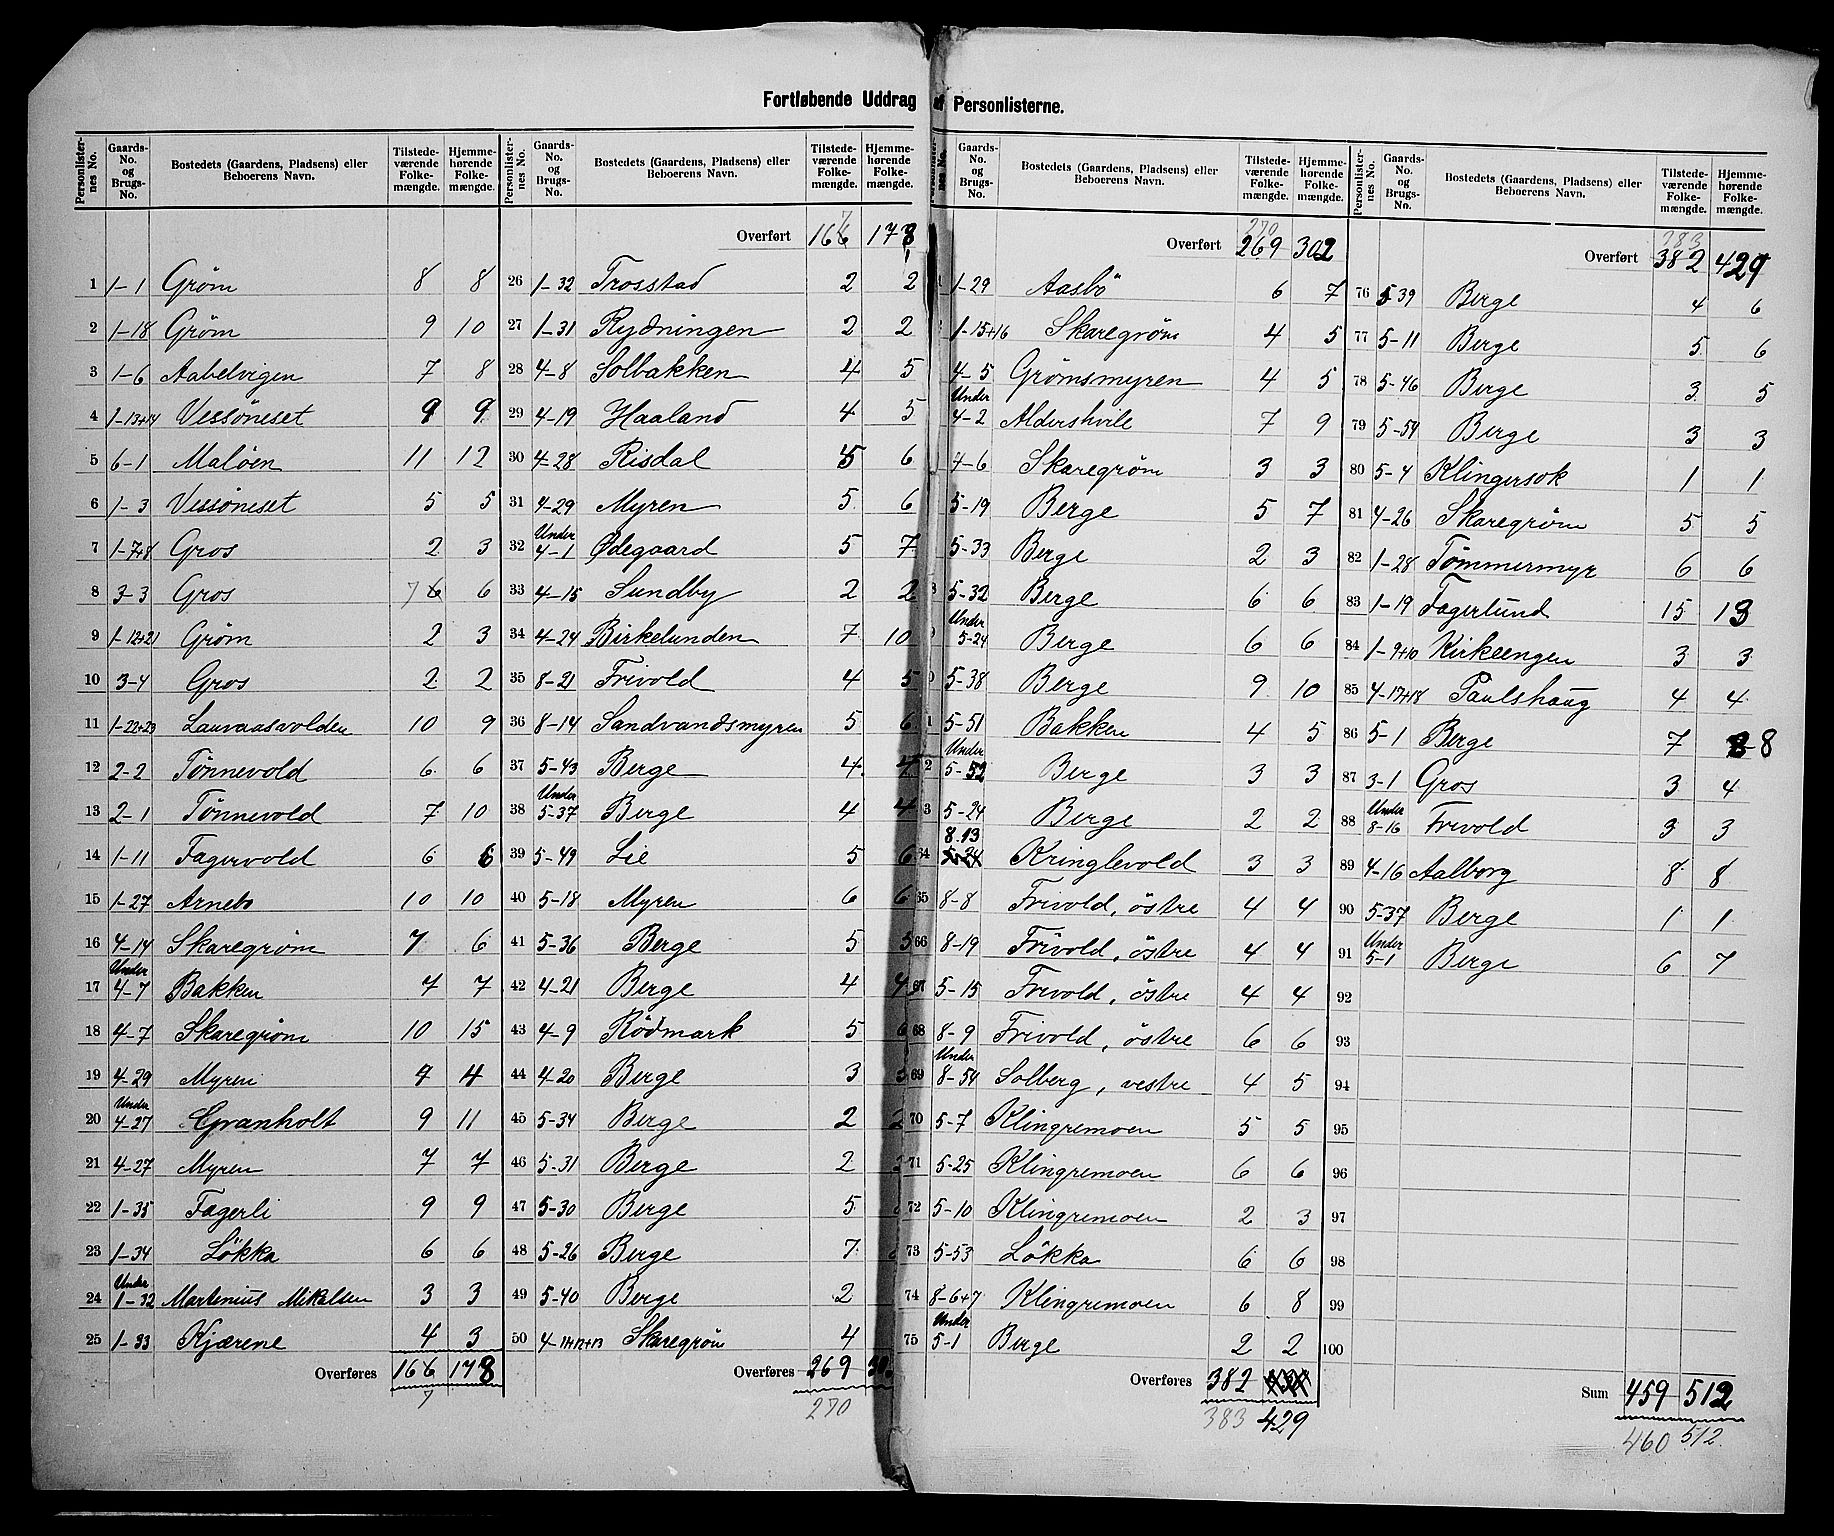 Fortløbende Uddrag af Personlisterne.
Personlister-nes No. Gaards-No. og Brugs-No. Bostedets (Gaardens, Pladsens) eller Beboerens Navn. Tilstede-værende Folke-mængde. Hjemme-hørende Folke-mængde.
1 1-1 Grøm 8 8
2 1-18 Grøm 9 10
3 1-6 Aabelvigen 7 8
4 1-13+14 Vessøneset 9 9
5 6-1 Maløen 11 12
6 1-3 Vessøneset 5 5
7 1-7+8 Gros 2 3
8 3-3 Gros 7 6 6
9 1-12+21 Grøm 2 3
10 3-4 Gros 2 2
11 1-22+23 Lauvaasvolden 10 9
12 2-2 Tønnevold 6 6
13 2-1 Tønnevold 7 10
14 1-11 Fagervold 6 6
15 1-27 Arnebo 10 10
16 4-14 Skaregrøm 7 6
17 Under 4-7 Bakken 7 7
18 4-7 Skaregrøm 10 15
19 4-29 Myren 4
20 Under 4-27 Granholt 9 11
21 4-27 Myren 7 7
22 1-35 Fagerli 9 9
23 1-34 Løkka 6 6
24 Under 1-32 Martinius Mikalsen 3 3
25 1-33 Kjærene 4 3
Overføres 166 178
7
Personlister-nes No. Gaards-No. og Brugs-No. Bostedets (Gaardens, Pladsens) eller Beboerens Navn. Tilstede-værende Folke-mængde. Hjemme-hørende Folke-mængde.
7
Overført 166 178
26 1-32 Trosstad 2 2
27 1-31 Rydningen 2 2
28 4-8 Solbakken 4 5
29 4-19 Haaland 4 5
30 4-28 Risdal 5 6
31 4-29 Myren 5 6
32 Under 4-1 Ødegaard 5 7
33 4-15 Sundby 2 2
34 4-24 Birkelunden 7 10
35 8-21 Frivold 4 5
36 8-14 Sandvandsmyren 5 6
37 5-43 Berge 4 4
38 Under 5-37 Berge 4 4
39 5-49 Lie 5 6
40 5-18 Myren 6 6
41 5-36 Berge 5 5
42 4-21 Berge 4 4
43 4-9 Rödmark 5 6
44 4-20 Berge 3 3
45 5-34 Berge 2 2
46 5-31 Berge 2
47 5-30 Berge 5
48 5-26 Berge 7
49 5-40 Berge 2
50 4-11+12+13 Skaregrøm 4
Overføres 269
270
Personlister-nes No. Gaards-No. og Brugs-No. Bostedets (Gaardens, Pladsens) eller Beboerens Navn. Tilstede-værende Folke-mængde. Hjemme-hørende Folke-mængde.
270
Overført 269 302
1-29 Aasbö 6 7
1-15+16 Skaregrøm 4 5
4-5 Grømsmyren 4 5
Under 4-2 Aldershvile 7 9
4-6 Skaregrøm 3 3
5-19 Berge 5 7
5-33 Berge 2 3
8 5-32 Berge 6 6
9 Under 5-24 Berge 6 6
0 5-38 Berge 9 10
1 5-51 Bakken 4 5
2 Under 5-52 Berge 3 3
3 5-24 Berge 2 2
64 8.13 Kringlevold 3 3
65 8-8 Frivold, östre 4 4
66 8-19 Frivold, östre 4 4
67 5-15 Frivold, östre 4 4
68 8-9 Frivold, östre 6 6
69 Under 8-54 Solberg, vestre 4 5
70 5-7 Klingremoen 5 5
71 5-25 Klingremoen 6 6
72 5-10 Klingremoen 2 3
73 5-53 Løkka 6 6
74 8-6+7 Klingremoen 6 8
75 Under 5-1 Berge 2 2
Overføres 382
383 429
Personlister-nes No. Gaards-No. og Brugs-No. Bostedets (Gaardens, Pladsens) eller Beboerens Navn. Tilstede-værende Folke-mængde. Hjemme-hørende Folke-mængde.
383
Overført 382 429
76 5-39 Berge 4 6
77 5-11 Berge 5 6
78 5-46 Berge 3 5
79 5-54 Berge 3 3
80 5-4 Klingersok 1 1
81 4-26 Skaregrøm 5 5
82 1-28 Tömmermyr 6 6
83 1-19 Fagerlund 15 13
84 1-9+10 Kirkeengen 3 3
85 4-17+18 Paulshaug 4 4
86 5-1 Berge 7 8
87 3-1 Gros 3 4
88 Under 8-16 Frivold 3 3
89 4-16 Aalborg 8 8
90 5-37 Berge 1 1
91 Under 5-1 Berge 6 7
92
93
94
95
96
97
98
99
100
Sum 459 512
460 512